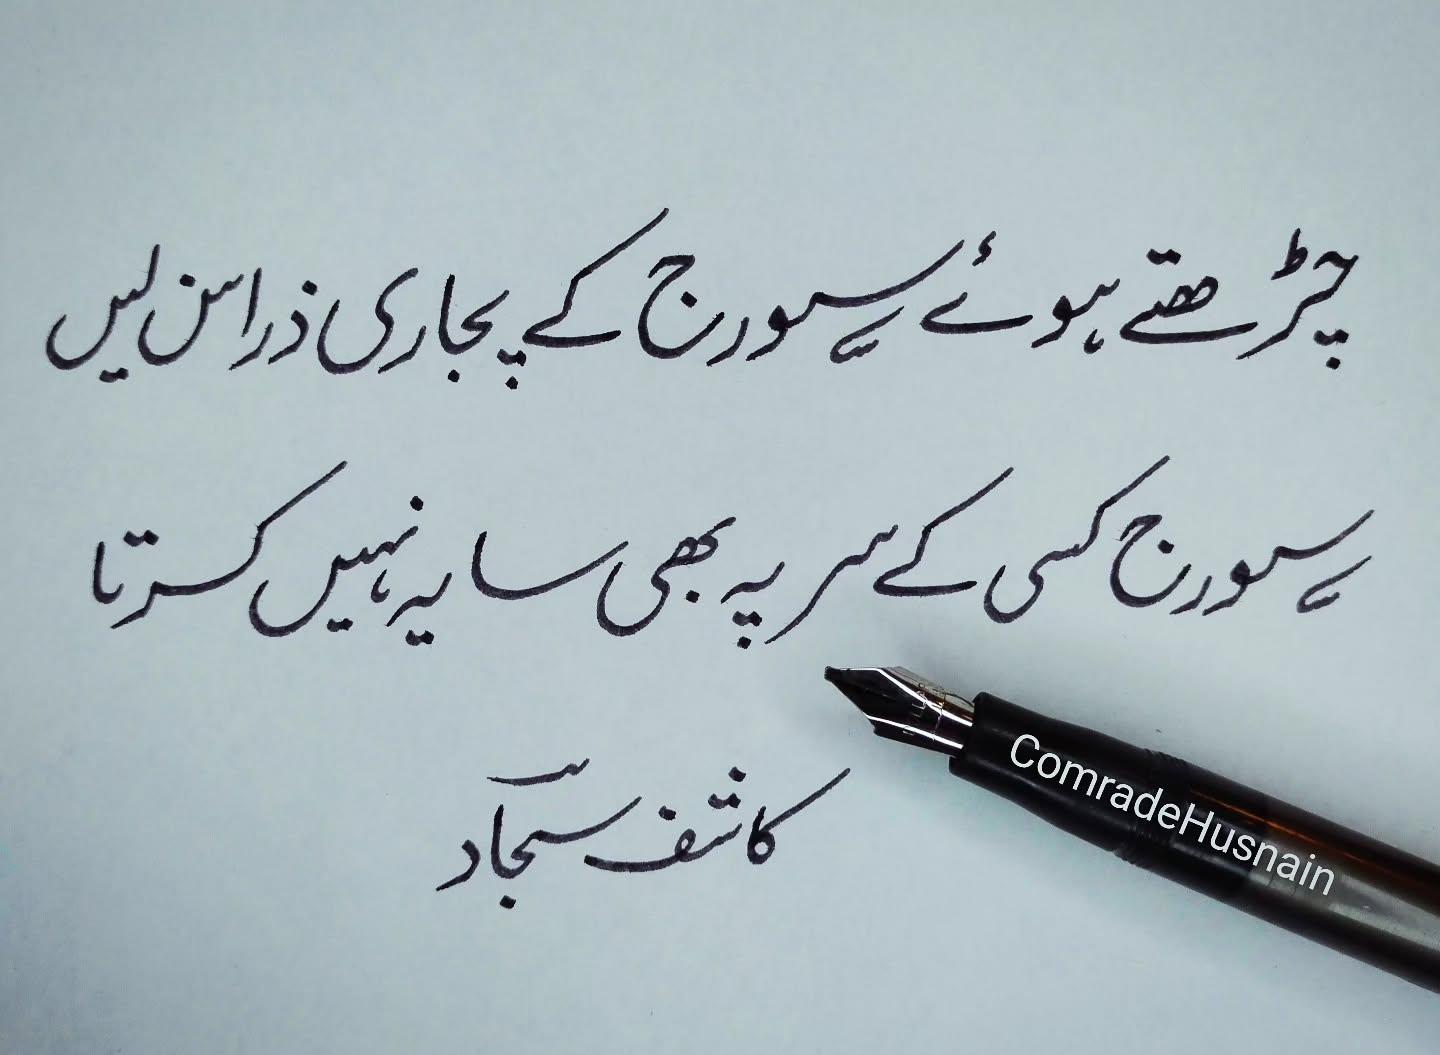 چڑھتے ہوئے سورج کے پجاری ذرا سن لیں
سورج کسی کے سر پہ بھی سایہ نہیں کرتا
کاشف سجاد
ComradeHusnain